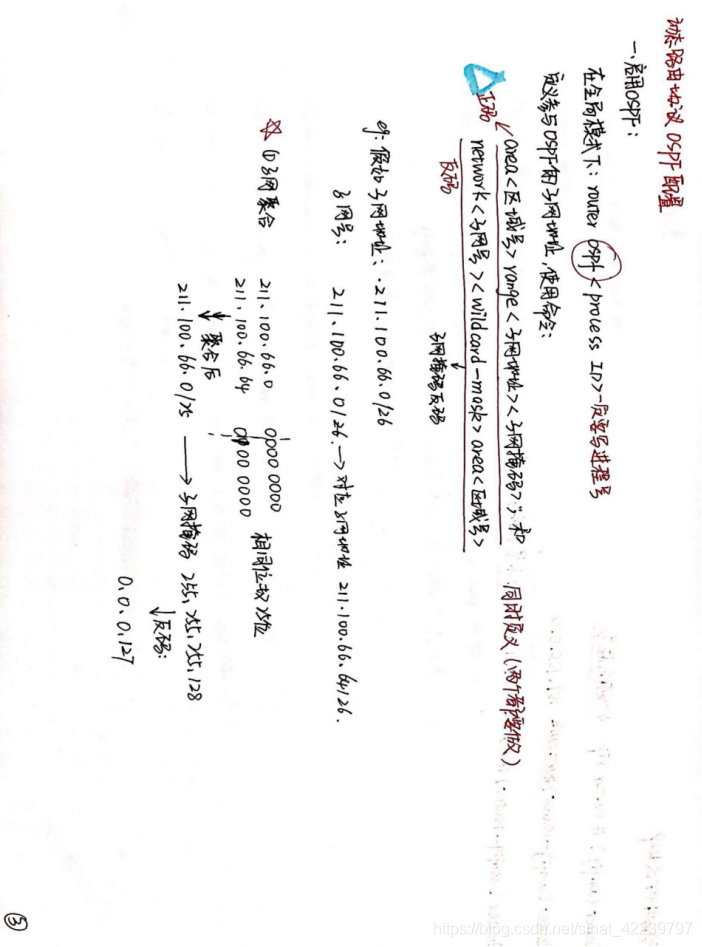 动态路由协议 OSPF 配置
一、启用OSPF:
在全局模式下: router ospf <process ID> 一般要写进程号
定义参与OSPF的子网地址,使用命令:
正码 area<区域号> range<子网地址><子网掩码>; 和
network<子网号><wildcard-mask>area<区域号>
同时定义(两个都要做)
反码
子网掩码反码
eg: 假如子网地址: 211.100.66.0/26
子网号: 211.100.66.0/26 → 对应子网地址 211.100.66.64/26.
☆ ①子网聚合 211.100.66.0 0000 0000 相同位数25位
211.100.66.64 0100 0000
↓ 聚合后
211.100.66.0/25 → 子网掩码 255.255.255.128
↓反码:
0.0.0.127
③
https://blog.csdn.net/sinat_42239797